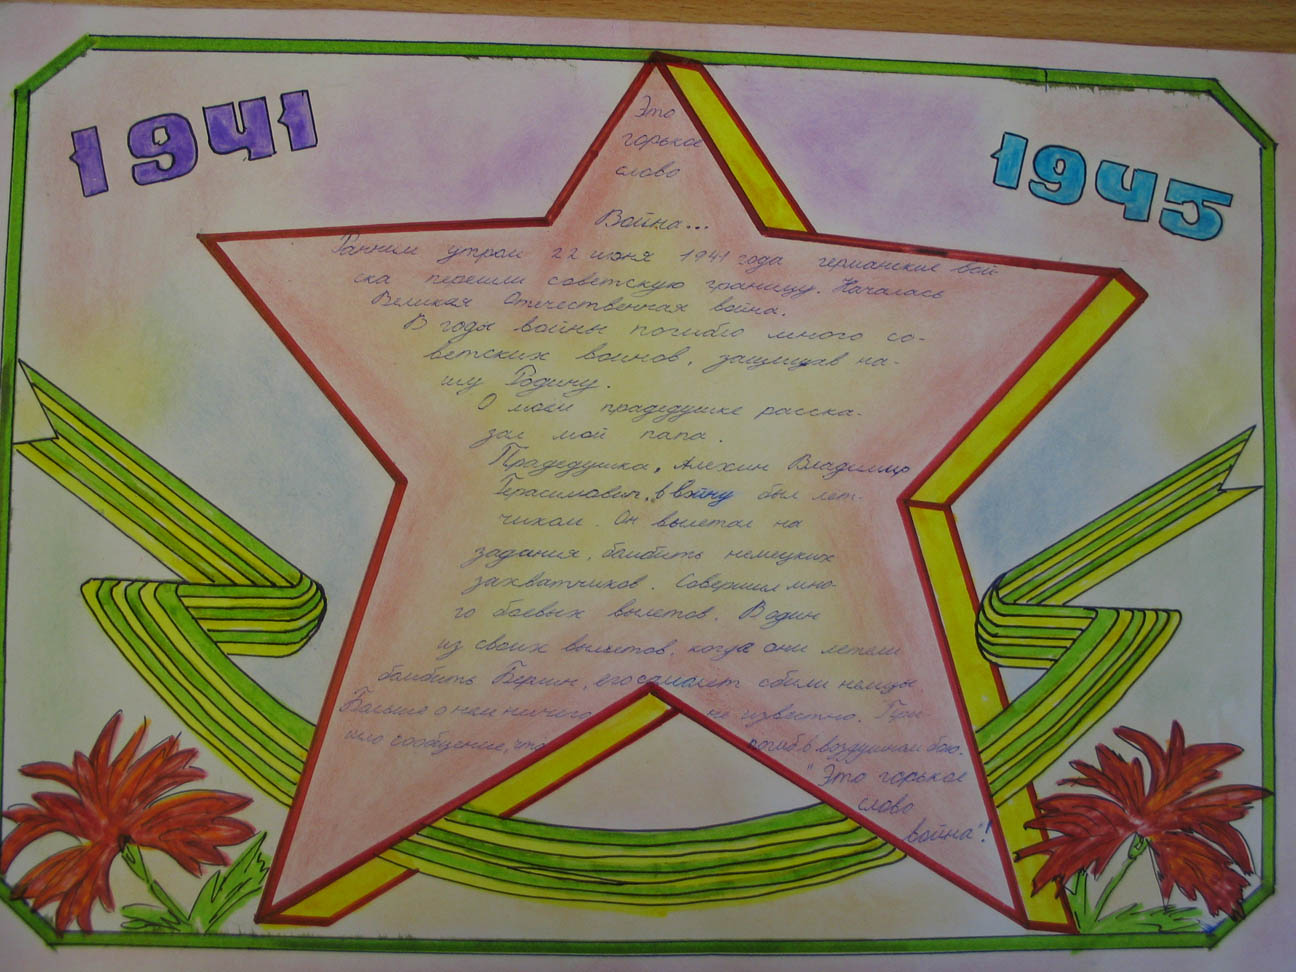 1941
1945
Это
горькое
слово
Война...
Ранним утром 22 июня 1941 года германские вой
ска перешли советскую границу. Началась
Великая Отечественная война.
В годы войны погибло много со-
ветских воинов, защищав на-
шу Родину.
О моём прадедушке расска-
зал мой папа.
Прадедушка, Алехин Владимир
Герасимович, в войну был лет-
чиком. Он вылетал на
задания, бомбить немецких
захватчиков. Совершил мно-
го боевых вылетов. В один
из своих вылетов, когда они летели
бомбить Берлин, его самолёт сбили немцы.
Больше о нем ничего не известно. При-
шло сообщение, что погиб в воздушном бою.
"Это горькое
слово
война"!